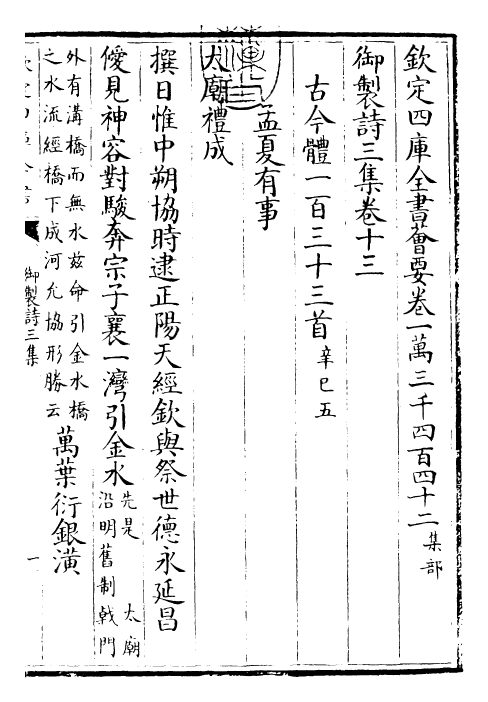 欽定四庫全書薈要卷一萬三千四百四十二 集部
御製詩三集卷十三
古今體一百三十三首 辛巳五
孟夏有事
太廟禮成
撰日惟中朔協時逮正陽天經欽與祭世德永延昌
優見神容對駿奔宗子襄一灣引金水 先是 太廟
沿明舊制戟門
外有溝橋而無水兹命引金水橋
之水流經橋下成河允協形勝云 萬葉衍銀潢
御製詩三集
一